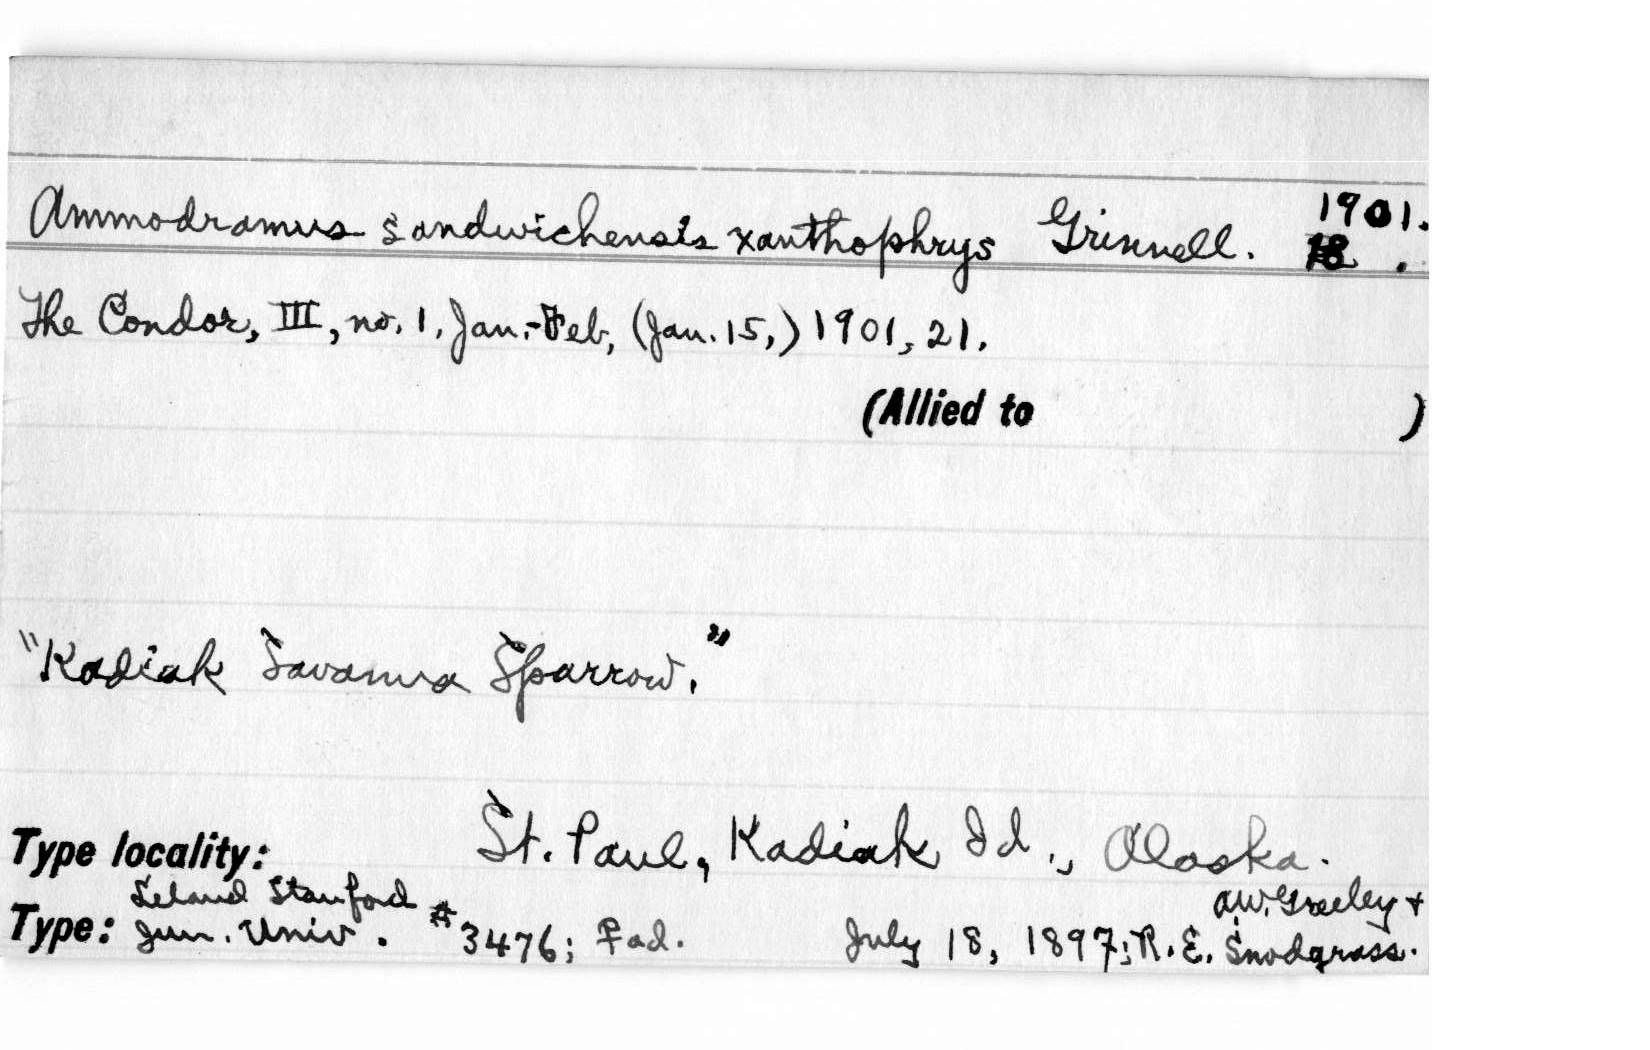 Ammodramus sandwichensis xanthophrys Grinnell. 1901.
18 .
The Condor, III, no. 1, Jan.-Feb, (Jan. 15,) 1901, 21.
(Allied to )
"Kadiak Savanna Sparrow."
Type locality: St. Paul, Kadiak Id., Alaska.
Type: Leland Stanford Jun. Univ. #3476; F ad. July 18, 1897; A.W. Greeley & R. E. Snodgrass.